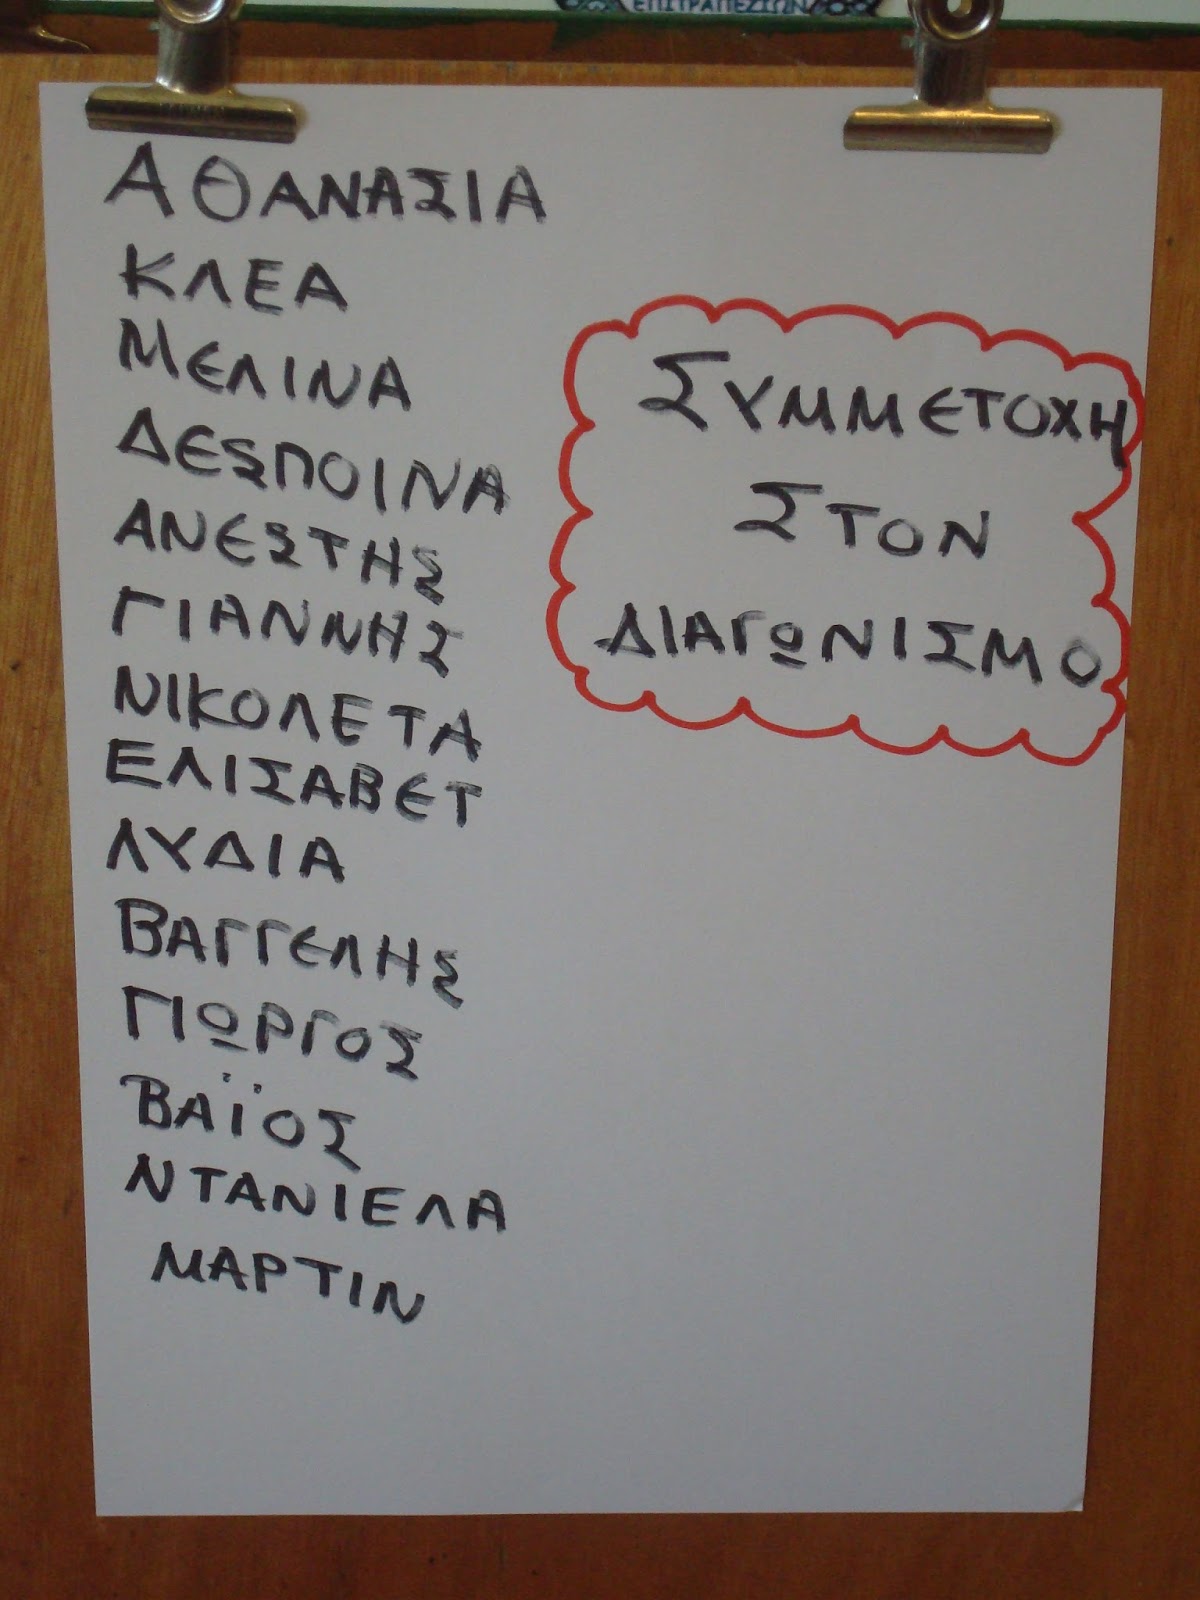 ΕΠΙΤΡΑΠΕΖΙΩΝ
ΑΘΑΝΑΣΙΑ
ΚΛΕΑ
ΜΕΛΙΝΑ
ΔΕΣΠΟΙΝΑ
ΑΝΕΣΤΗΣ
ΓΙΑΝΝΗΣ
ΝΙΚΟΛΕΤΑ
ΕΛΙΣΑΒΕΤ
ΛΥΔΙΑ
ΒΑΓΓΕΛΗΣ
ΓΙΩΡΓΟΣ
ΒΑΪΟΣ
ΝΤΑΝΙΕΛΑ
ΜΑΡΤΙΝ
ΣΥΜΜΕΤΟΧΗ
ΣΤΟΝ
ΔΙΑΓΩΝΙΣΜΟ